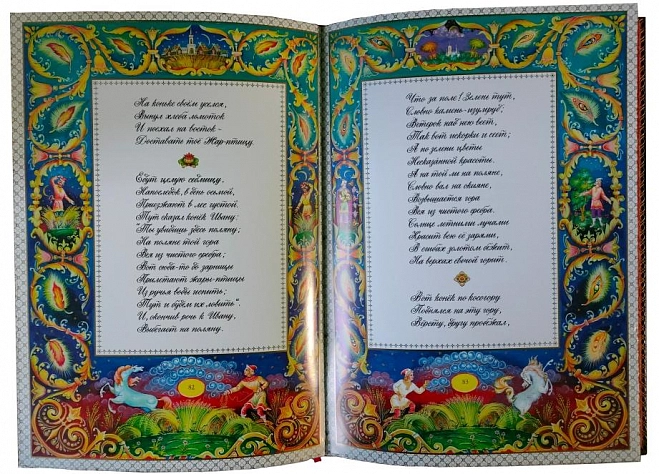 На коньке своём уселся,
Вынул хлеба ломоток
И поехал на восток –
Доставать тое Жар-птицу.
Едут целую седмицу,
Напоследок, в день осьмой,
Приезжают в лес густой.
Тут сказал конёк Ивану:
"Ты увидишь здесь поляну;
На поляне той гора
Вся из чистого сребра;
Вот сюда-то до зарницы
Прилетают жары-птицы
Из ручья воды испить;
Тут и будем их ловить".
И, окончив речь к Ивану,
Выбегает на поляну.
82
Что за поле! Зелень тут,
Словно камень-изумруд;
Ветерок над нею веет,
Так вот искорки и сеет;
А по зелени цветы
Несказанной красоты.
А на той ли на поляне,
Словно вал на океане,
Возвышается гора
Вся из чистого сребра.
Солнце летними лучами
Красит всю её зарями,
В сгибах золотом бежит,
На верхах свечой горит.
Вот конёк по косогору
Поднялся на эту гору,
Версту, другу пробежал,
83